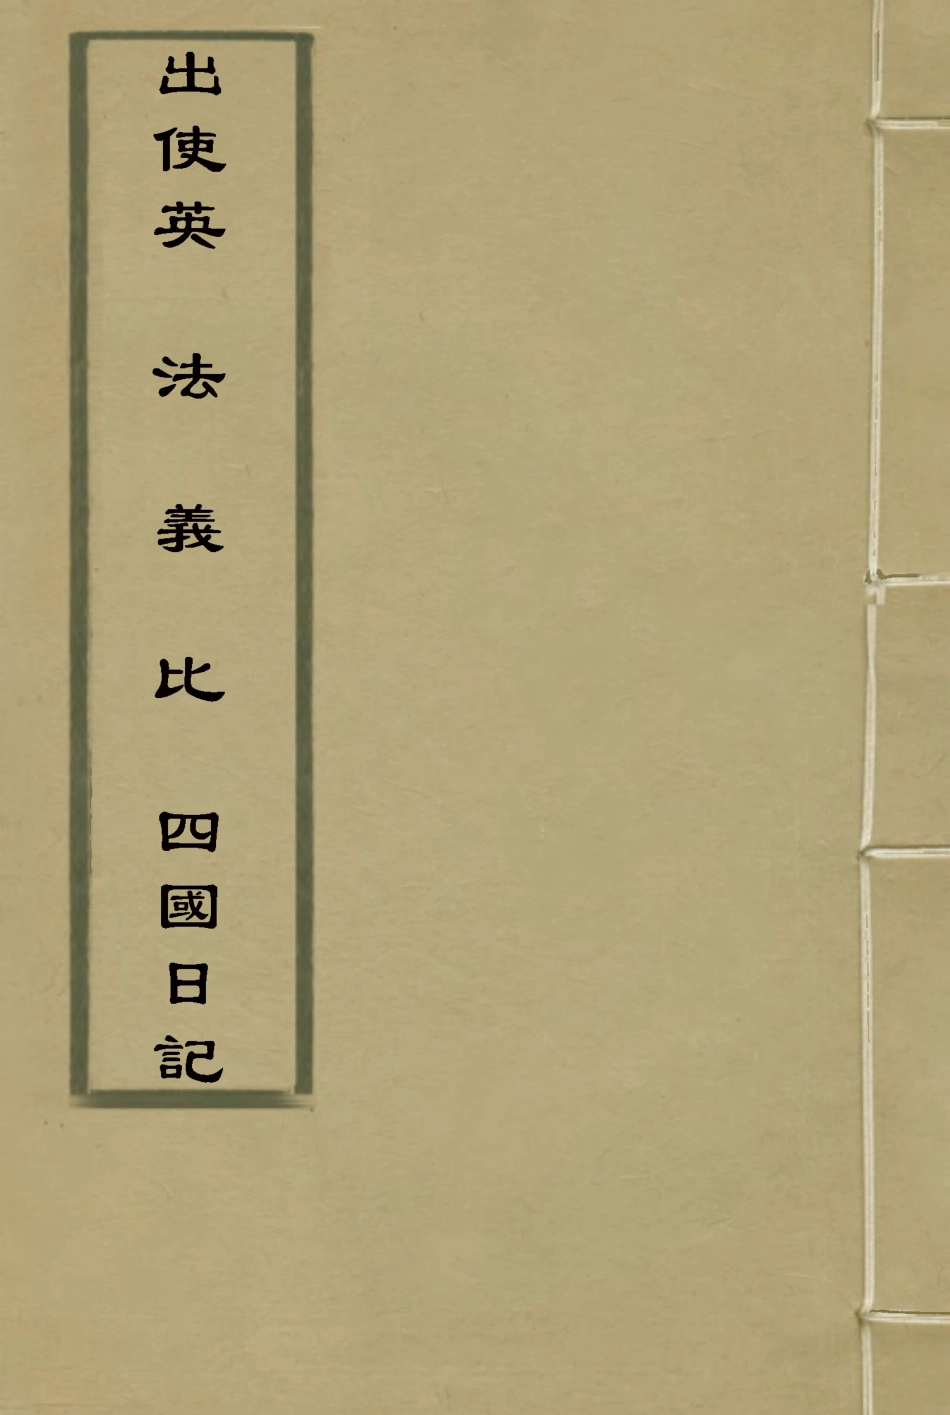 出使英 法 義 比 四國日記